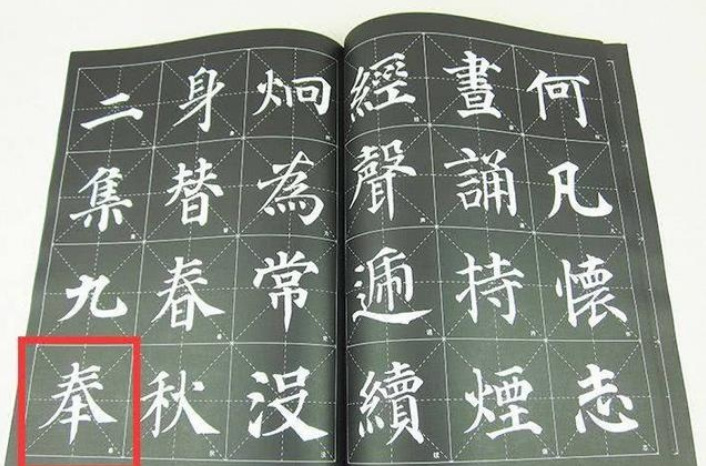 何凡懷志
晝誦持煙
經聲遞續
炯為常没
身替春秋
二集九奉